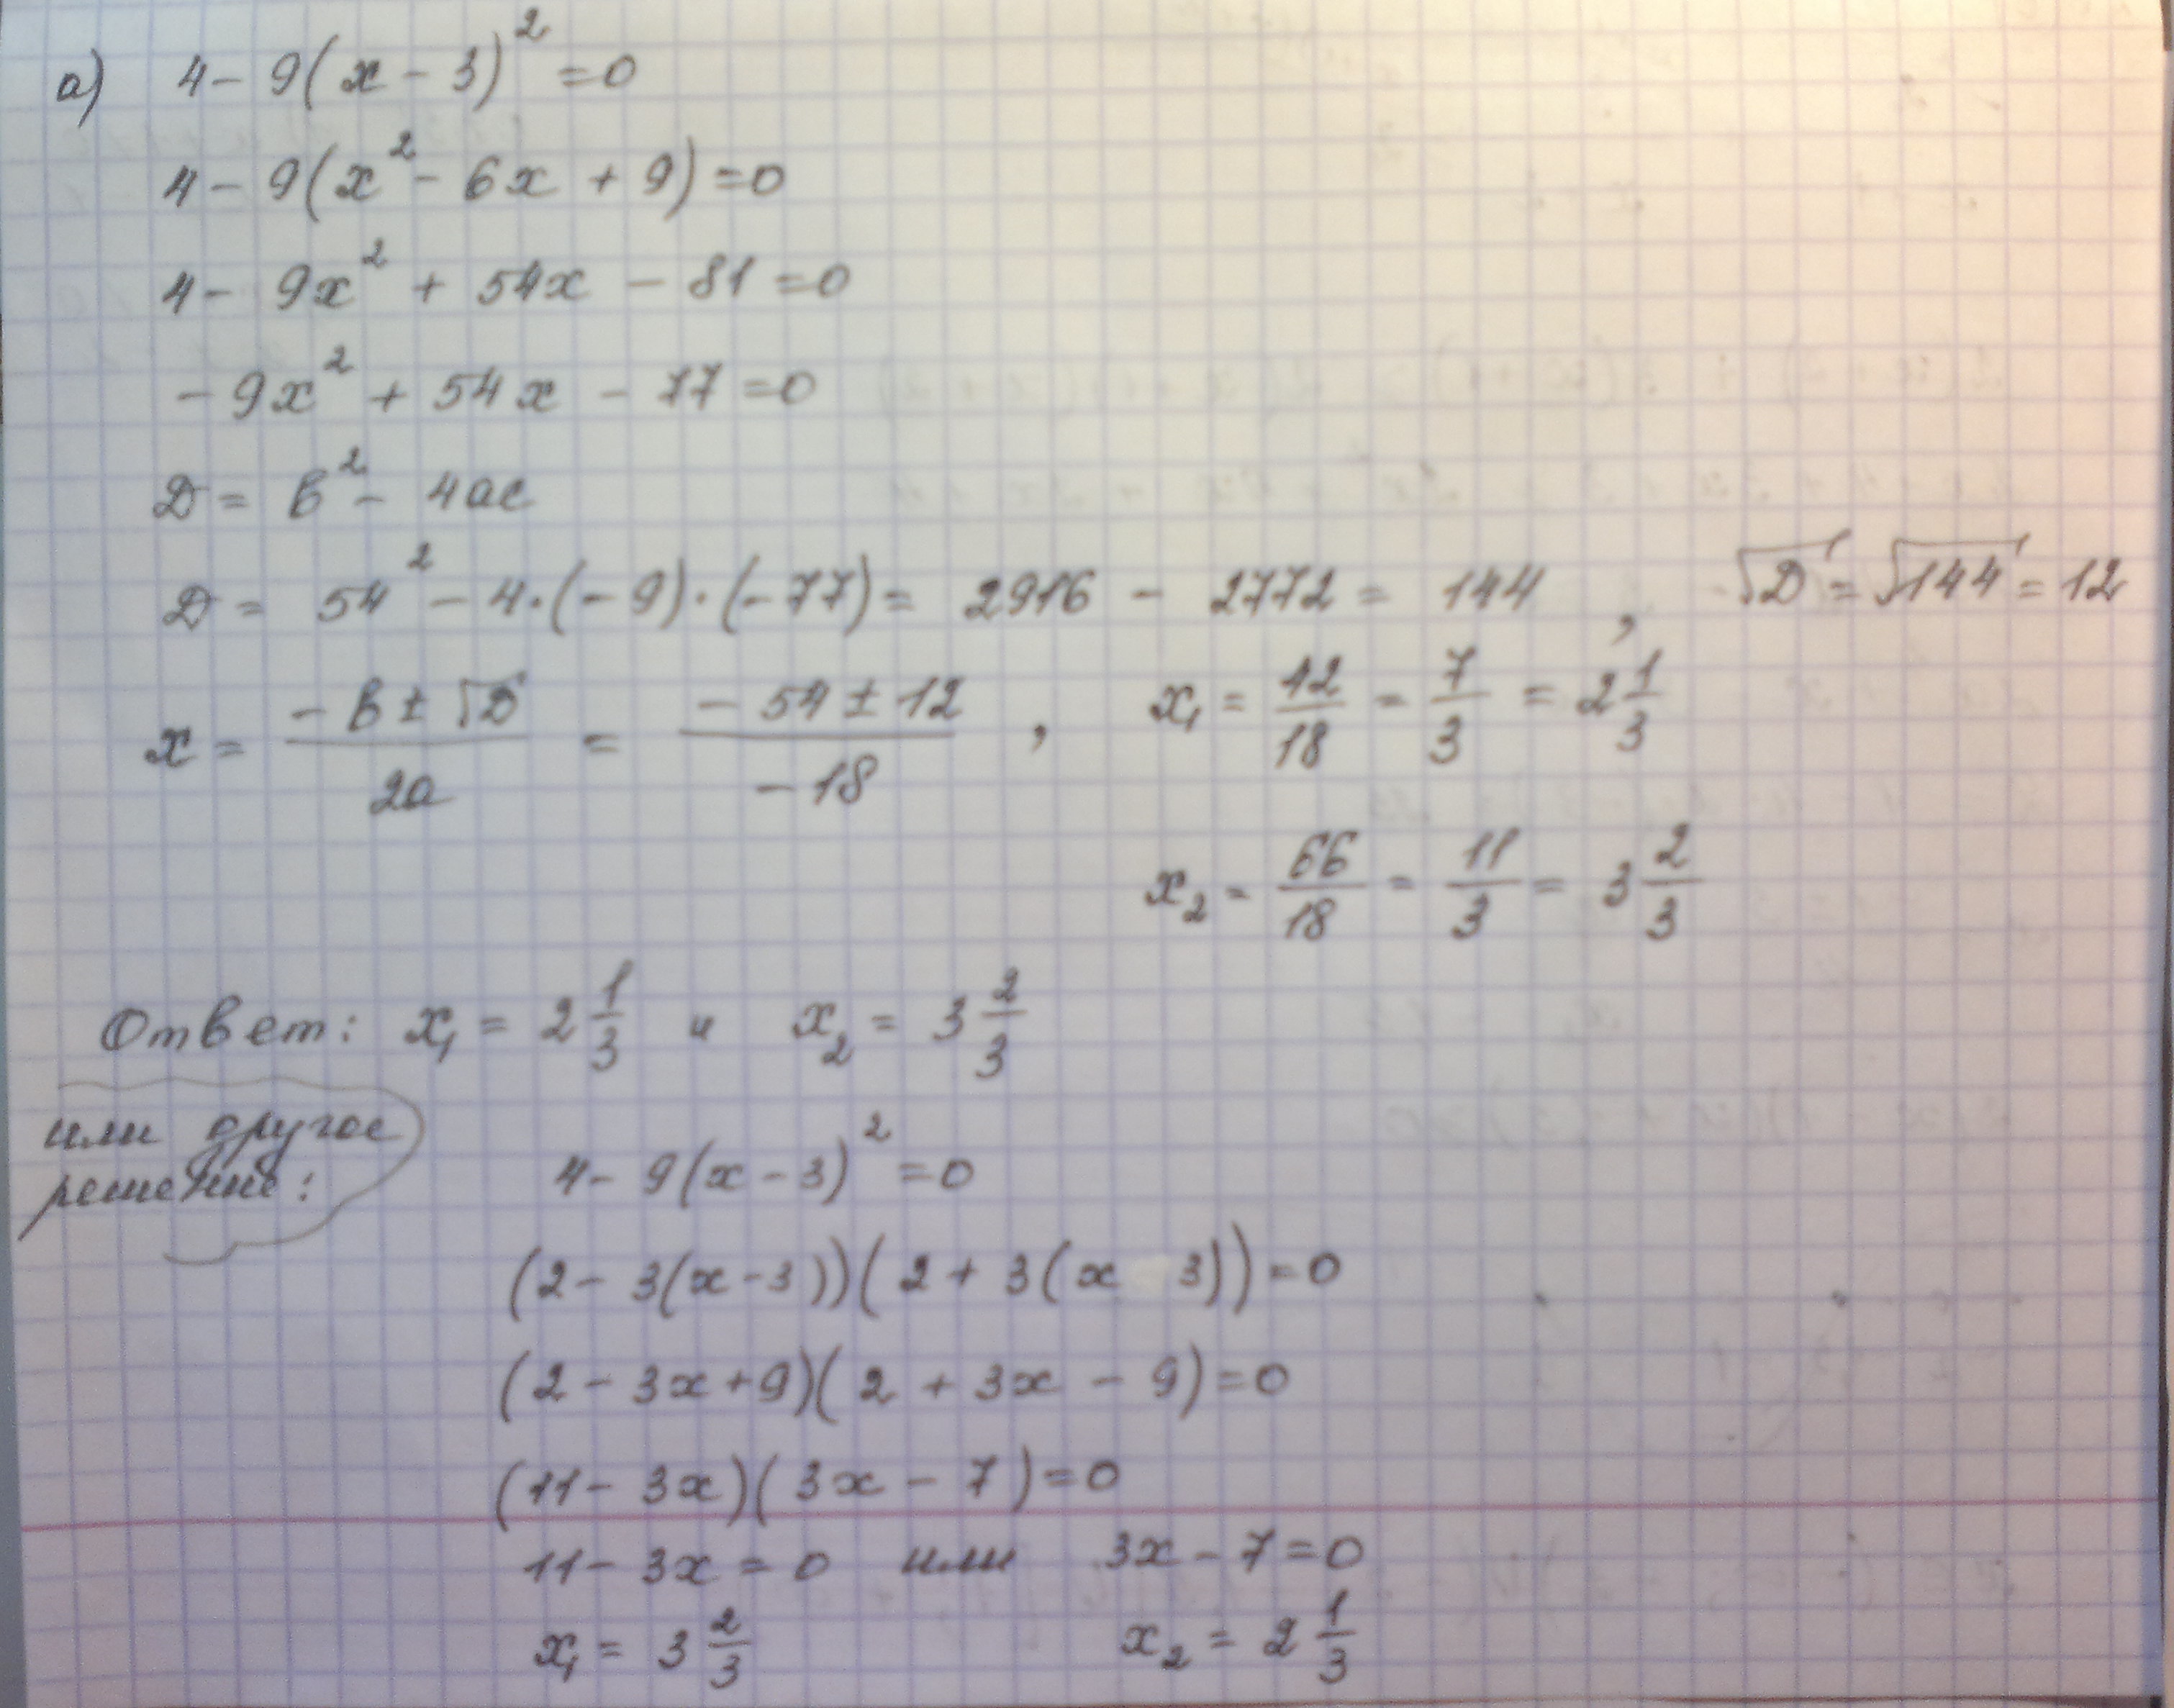 а) 4 - 9(x - 3)² = 0
4 - 9(x² - 6x + 9) = 0
4 - 9x² + 54x - 81 = 0
- 9x² + 54x - 77 = 0
D = b² - 4ac
D = 54² - 4·(-9)·(-77) = 2916 - 2772 = 144 , √D = √144 = 12
x = (-b ± √D)/2a = (-54 ± 12)/-18 , x₁ = 42/18 = 7/3 = 2 1/3
x₂ = 66/18 = 11/3 = 3 2/3
Ответ: x₁ = 2 1/3 и x₂ = 3 2/3
или другое
решение:
4 - 9(x - 3)² = 0
(2 - 3(x - 3))(2 + 3(x 3)) = 0
(2 - 3x + 9)(2 + 3x - 9) = 0
(11 - 3x)(3x - 7) = 0
11 - 3x = 0 или 3x - 7 = 0
x₁ = 3 2/3 x₂ = 2 1/3